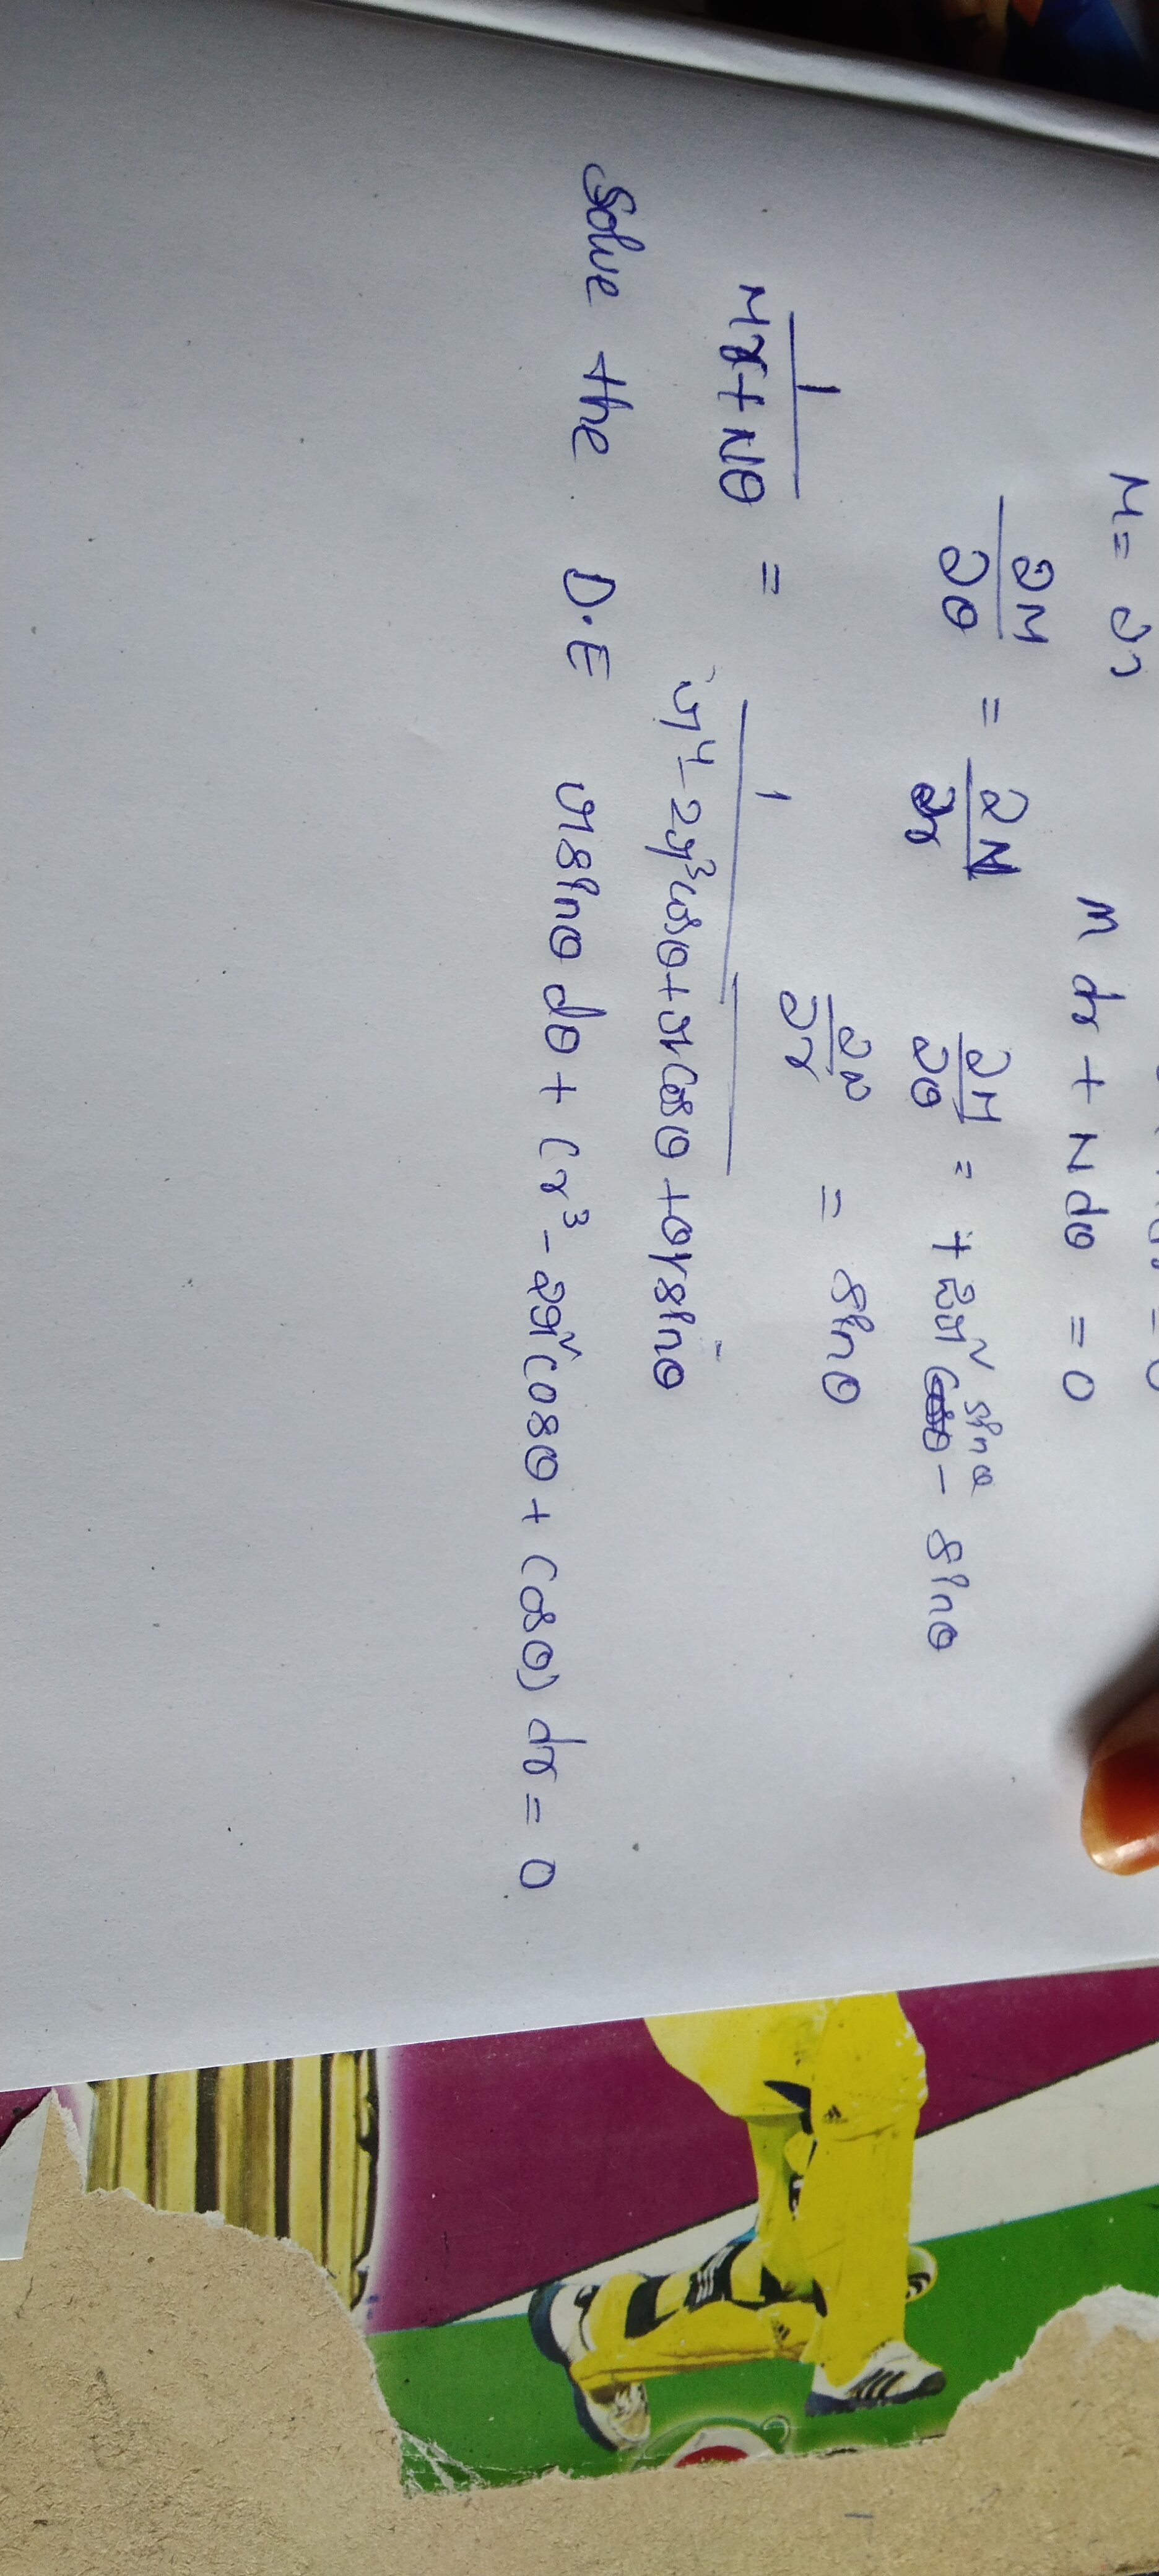 M dr + N dθ = 0
∂M/∂θ = ∂N/∂r ∂M/∂θ = + 2r² sinθ - sinθ
∂N/∂r = sinθ
1/(Mr + Nθ) = 1/(r⁴ - 2r³cosθ + r cosθ + θr sinθ)
Solve the D.E r sinθ dθ + (r³ - 2r²cosθ + cosθ) dr = 0